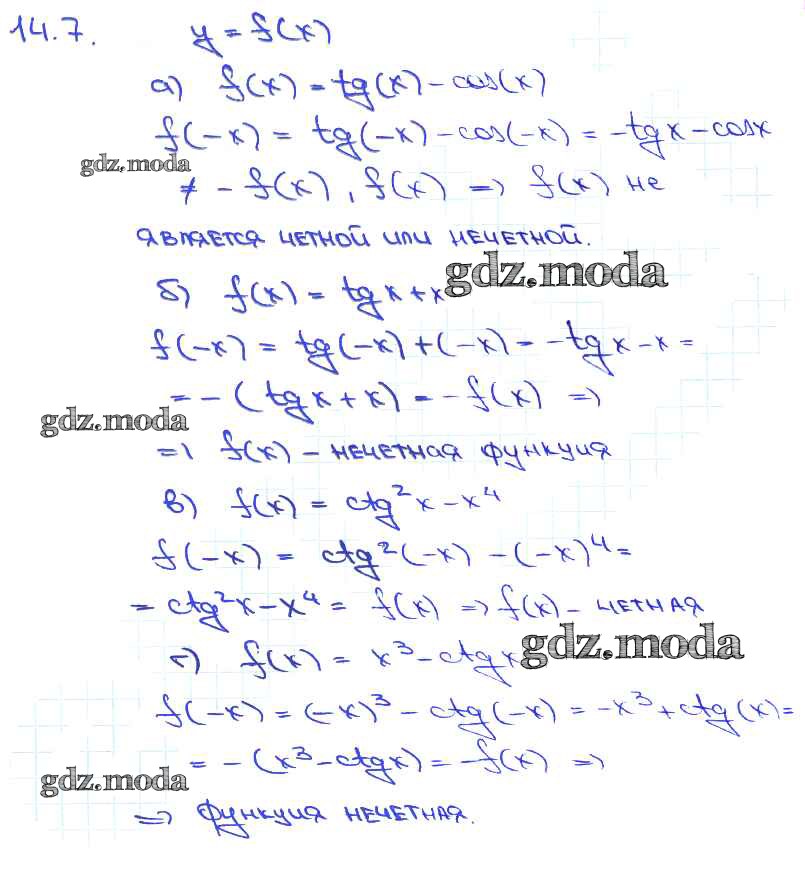 14.7. y = f(x)
а) f(x) = tg(x) - cos(x)
f(-x) = tg(-x) - cos(-x) = -tgx - cosx
gdz.moda
≠ - f(x), f(x) => f(x) не
является четной или нечетной.
gdz.moda
б) f(x) = tgx + x
f(-x) = tg(-x) + (-x) = -tgx - x =
= - (tgx + x) = - f(x) =>
gdz.moda
=> f(x) - нечетная функция
в) f(x) = ctg²x - x⁴
f(-x) = ctg²(-x) - (-x)⁴ =
= ctg²x - x⁴ = f(x) => f(x) - четная
г) f(x) = x³ - ctgx
gdz.moda
f(-x) = (-x)³ - ctg(-x) = -x³ + ctg(x) =
= - (x³ - ctgx) = -f(x) =>
gdz.moda
=> функция нечетная.